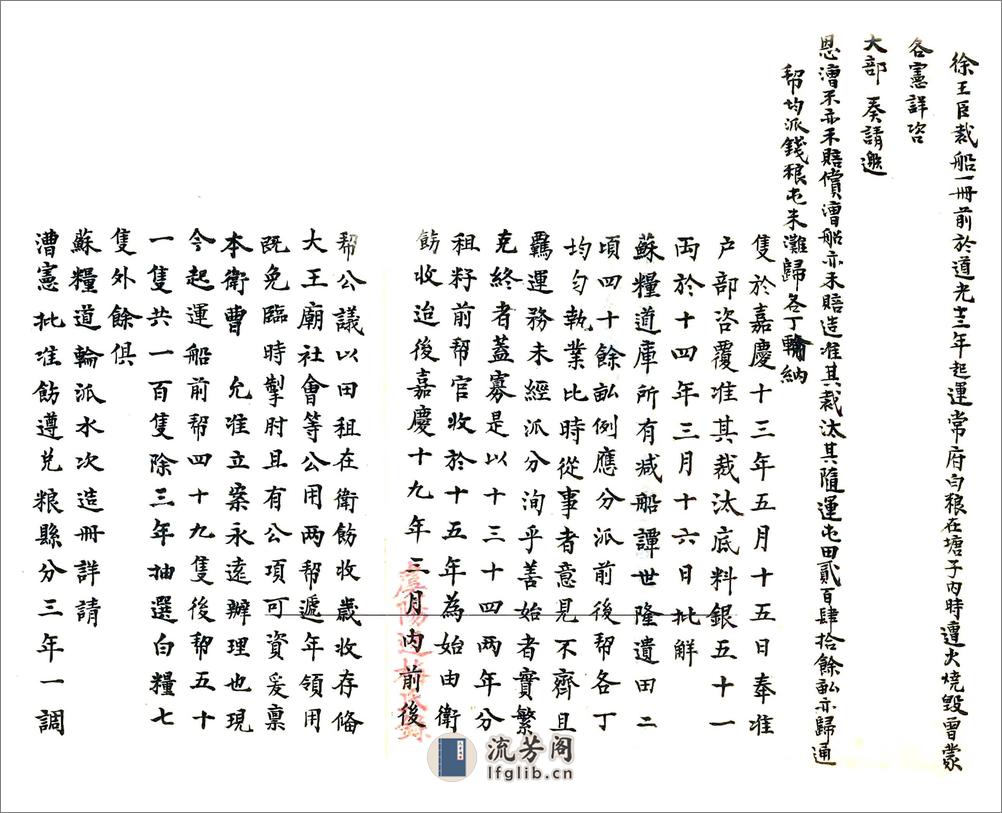 徐王臣裁船一冊前於道光十三年起運常府白粮在塘子內時遭火燒毀曾蒙
各憲詳咨
大部奏請邀
恩漕米亦未賠償漕船亦未賠造准其裁汰其隨運屯田貳百肆拾餘畝亦歸通
幇均派錢粮屯米灘歸各丁輪納
隻於嘉慶十三年五月十五日奉准
户部咨覆准其裁汰底料銀五十一
両於十四年三月十六日批解
蘇糧道庫所有减船譚世隆遺田二
頃四十餘畝例應分派前後帮各丁
均勻執業比時從事者意見不齊且
羈運務未經派分洵乎善始者實繁
克終者蓋寡是以十三十四兩年分
租籽前帮官收於十五年為始由衛
飭收迨後嘉慶十九年三月內前後
帮公議以田租在衛飭收歲收存俻
大王廟社會等公用两帮遞年領用
既免臨時掣肘且有公項可資爰禀
本衛曹 允准立案永遠辦理也現
今起運船前帮四十九隻後帮五十
一隻共一百隻除三年抽選白糧七
隻外餘俱
蘇糧道輪派水次造冊詳請
漕憲批准飭遵兌粮縣分三年一調
流芳阁
lfglib.cn